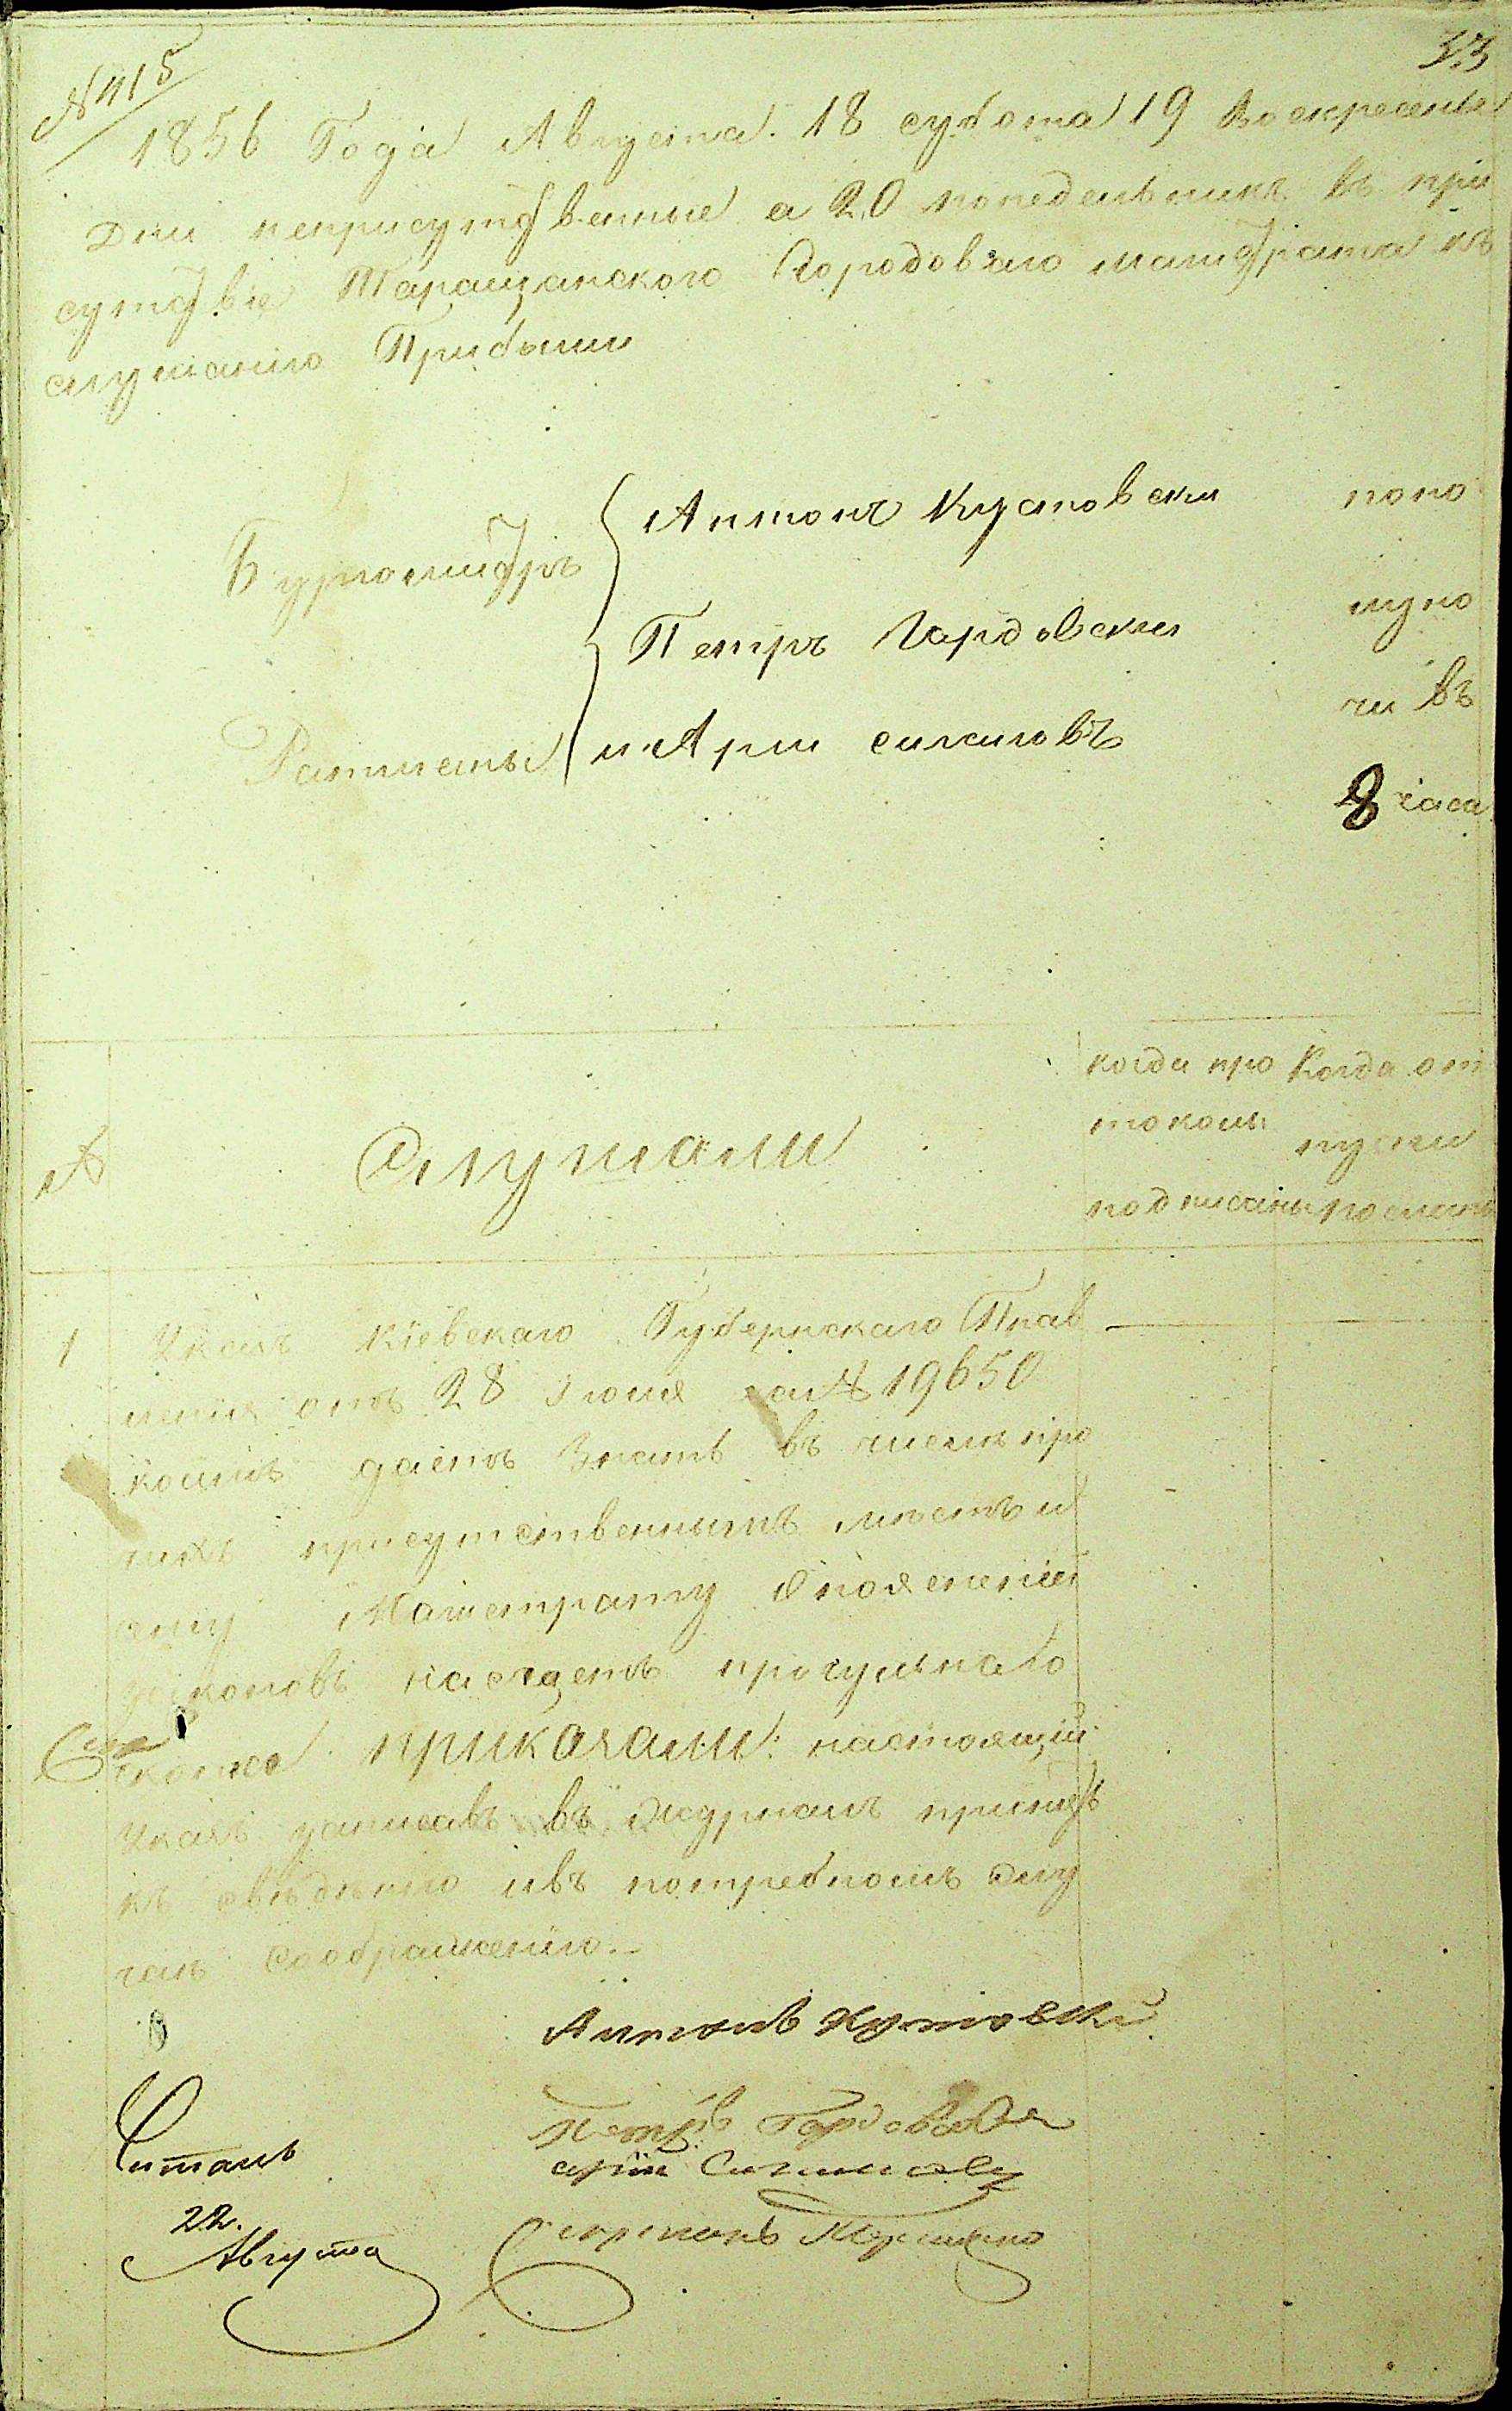 № 415
33
1856 Года Августа 18 субота 19 воскресенье
дни неприсутственные а 20 понедельникъ въ при
сутствіе Таращанского Городоваго магистрата къ
слушанію Прибыли
Бургомистръ
Антонъ Кутовски
Петръ Гардовски
Ратманы
и Арии силиговъ
попо
луно
чи въ
8 часа
№
Слушали
когда про
токолы
подписаны
Когда от
пуски
посланы
1 Указъ Кіевскаго Губернскаго Прав
ленія отъ 28 Іюля за № 19650
коимъ даетъ знать въ числѣ про
чихъ присутственныхъ мѣстъ и
сему Магистрату о поясненіи
законовъ насщетъ прогульнаго
скота приказали: настоящій
Указъ записавъ въ журналъ принять
къ свѣдѣнію и въ потребномъ слу
чаѣ соображенію.
Антонъ Кутовскій
Петръ Гардовски
Читалъ
22.
Августа